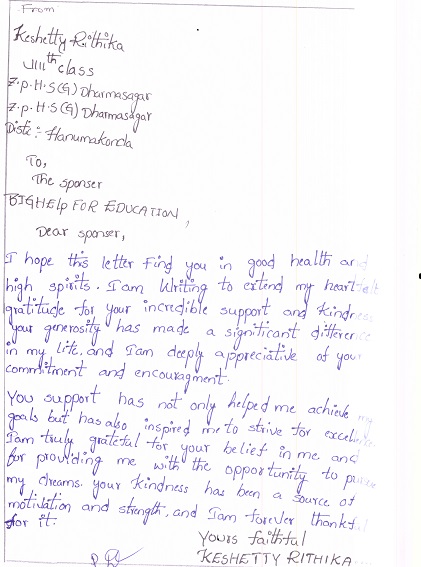 From
Keshetty Rithika
VIIIth class
Z.p.H.S(G) Dharmasagar
Z.p.H.S(G) Dharmasagar
Distc: Hanumakonda
To,
The sponser
BIGHElp FOR EDUCATION,
Dear sponser,
I hope this letter find you in good health and
high spirits. I am writing to extend my heartfelt
gratitude for your incredible support and kindness
your generosity has made a significant difference
in my life, and I am deeply appreciative of your
commitment and encouragment.
You support has not only helped me achieve my
goals but has also inspired me to strive for excellence
I am truly grateful for your belief in me and
for providing me with the opportunity to pursue
my dreams. your kindness has been a source of
motivation and strength, and I am forever thankful
for it.
Yours faithful
KESHETTY RITHIKA